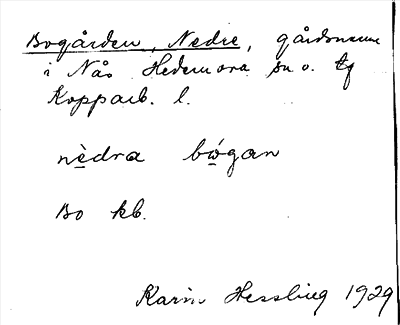 Bogården, Nedre, gårdsnamn
i Nås Hedemora sn o. tg
Kopparb. l.
nèdra bógan
Bo kb.
Karin 1929